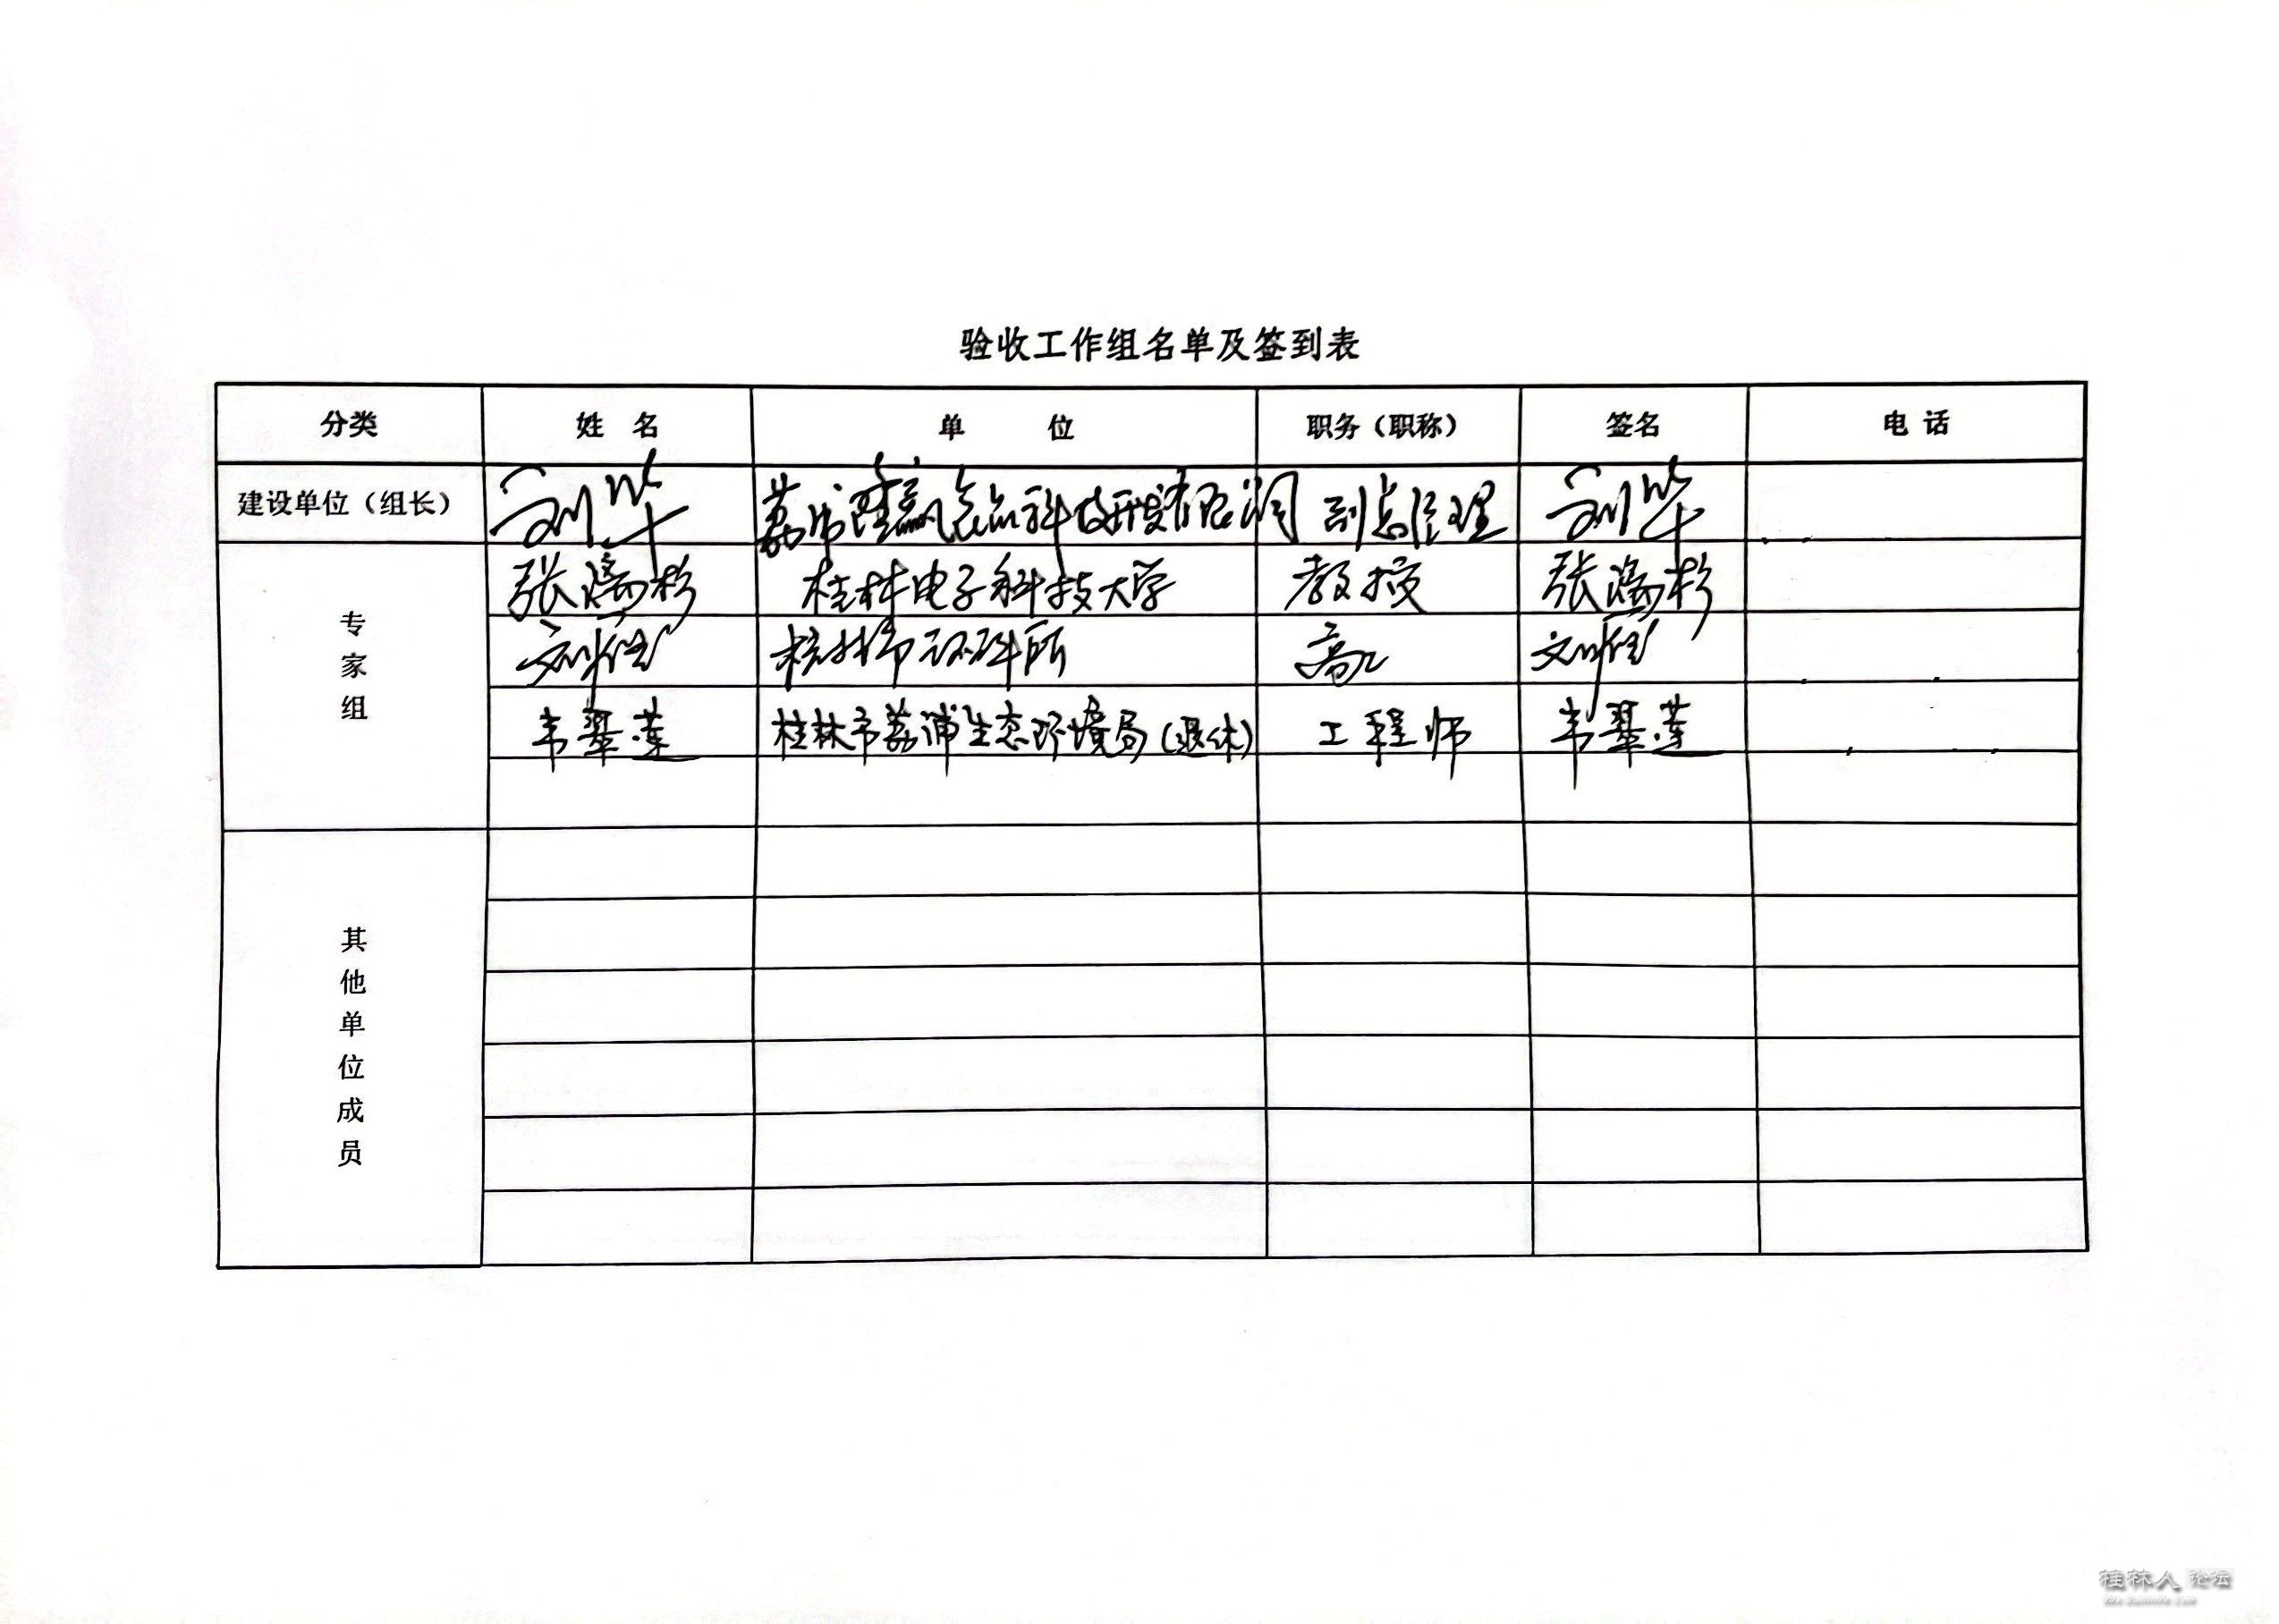 验收工作组名单及签到表
分类 姓 名 单 位 职务（职称） 签名 电 话
建设单位（组长） 刘华 荔浦 食品科技开发有限公司 副总经理 刘华
专家组
张 杉 桂林电子科技大学 教授 张 杉
刘 桂林市环科所 高工 刘
韦翠莲 桂林市荔浦生态环境局（退休） 工程师 韦翠莲
其他单位成员
桂林人论坛